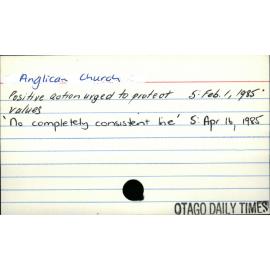 Anglican Church :
Positive action urged to protect 5. Feb. 1, 1985.
values
'No completely consistent line' 5: Apr 16, 1985
OTAGO DAILY TIMES